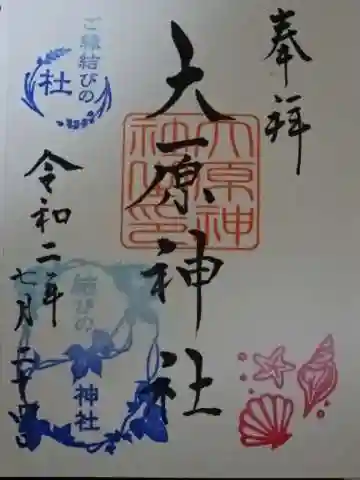 奉拝
大原神社
大原神
社
令和二年
七月二十四日
ご縁結びの
社
結びの
神社